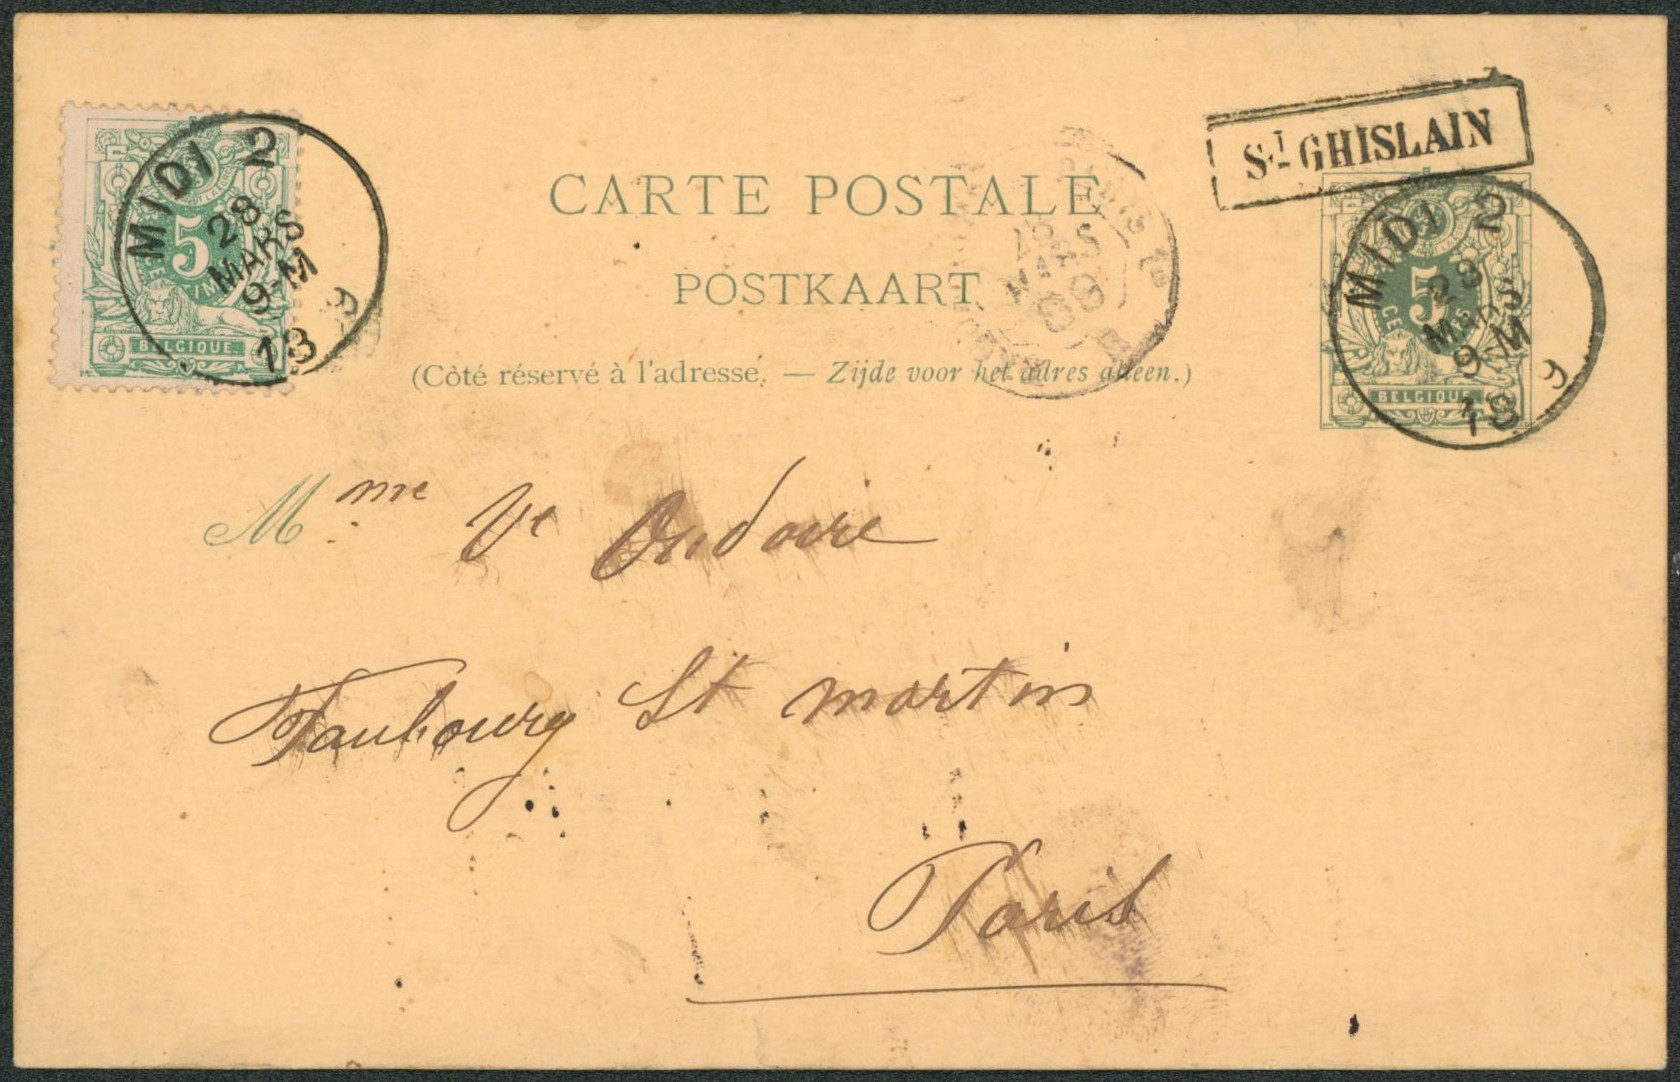 St GHISLAIN
CARTE POSTALE
POSTKAART
(Côté réservé à l'adresse. — Zijde voor het adres alleen.)
5
CE
BELGIQUE.
MIDI 2
28
MARS
9-M
18 9
5
CE
BELGIQUE.
MIDI 2
28
MARS
9-M
18 9
Mme Ve
Faubourg St martin
Paris